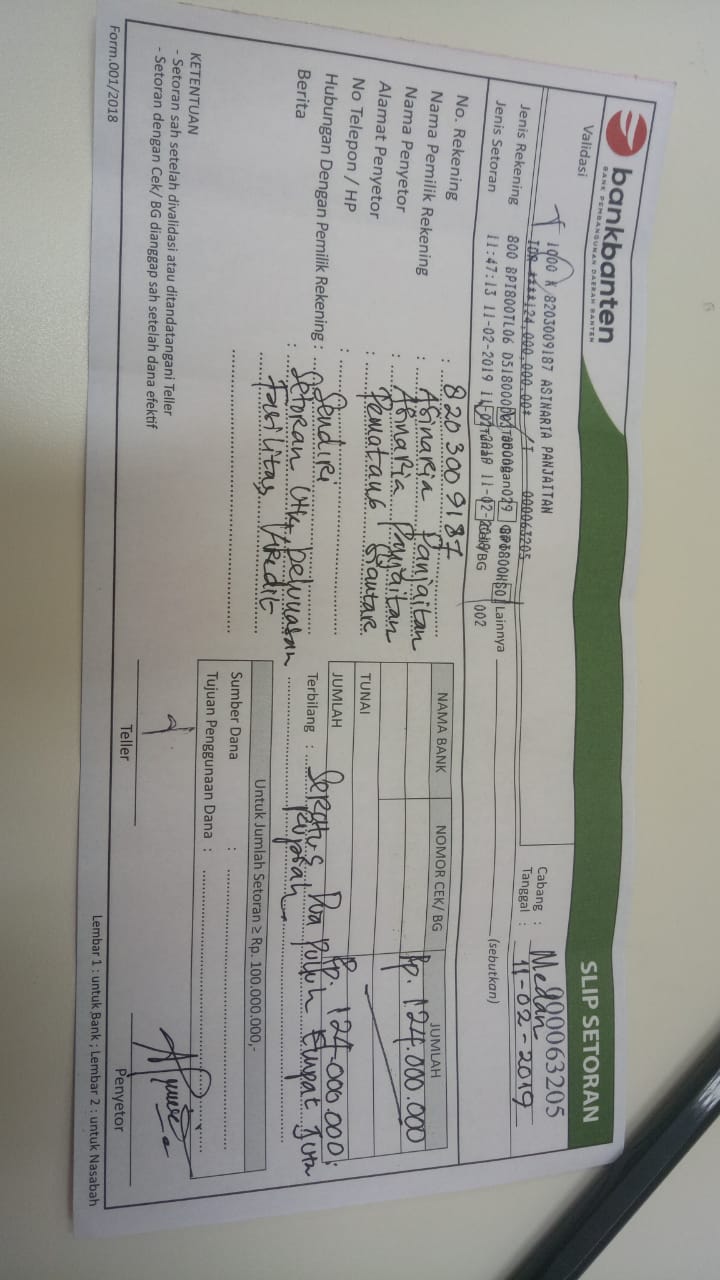 bankbanten
BANK PEMBANGUNAN DAERAH BANTEN
SLIP SETORAN
Validasi
1000 K 8203009187 ASINARIA PANJAITAN
IDR ****124,000,000.00* /T 000063205
800 BPI800TL06
11:47:13 11-02-2019
Jenis Rekening
Jenis Setoran
Lainnya
002
(sebutkan)
00063205
Cabang : Medan
Tanggal : 11-02-2019
No. Rekening : 8203009187
Nama Pemilik Rekening : Asinaria Panjaitan
Nama Penyetor : Asinaria Panjaitan
Alamat Penyetor : Pematang Siantar
No Telepon / HP :
Hubungan Dengan Pemilik Rekening : Sendiri
Berita : Setoran Utk. pelunasan
Fasilitas Kredit
NAMA BANK NOMOR CEK/ BG JUMLAH
Rp. 124.000.000
TUNAI
JUMLAH Rp. 124.000.000,
Terbilang : Seratus Dua puluh Empat Juta
Rupiah
Untuk Jumlah Setoran ≥ Rp. 100.000.000,-
Sumber Dana :
Tujuan Penggunaan Dana :
KETENTUAN
- Setoran sah setelah divalidasi atau ditandatangani Teller
- Setoran dengan Cek/ BG dianggap sah setelah dana efektif
Teller
Penyetor
Form.001/2018
Lembar 1 : untuk Bank ; Lembar 2 : untuk Nasabah